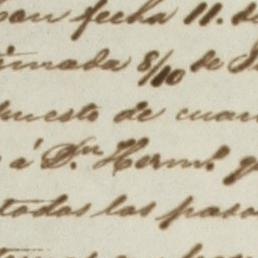 con fecha 11. de
imada 8/10 de
puesto de cuan
á D.n Herml. q
todas las paso